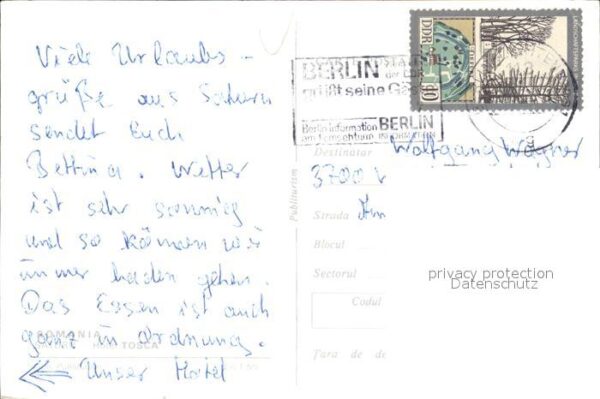 Viele Urlaubs-
grüße aus Saturn
sendet Euch
Bettina. Wetter
ist sehr sonnig
und so können wir
immer baden gehen.
Das Essen ist auch
ganz in Ordnung.
← Unser Hotel
ROMANIA
TOSCA
Publiturism
DDR
10
BERLIN
der DDR
grüßt seine Gäste
Berlin-Information BERLIN
am Fernsehturm INFORMATION
Destinatar
Wolfgang Wagner
3700
Strada
Blocul
Sectorul
Codul
Țara de de
privacy protection
Datenschutz